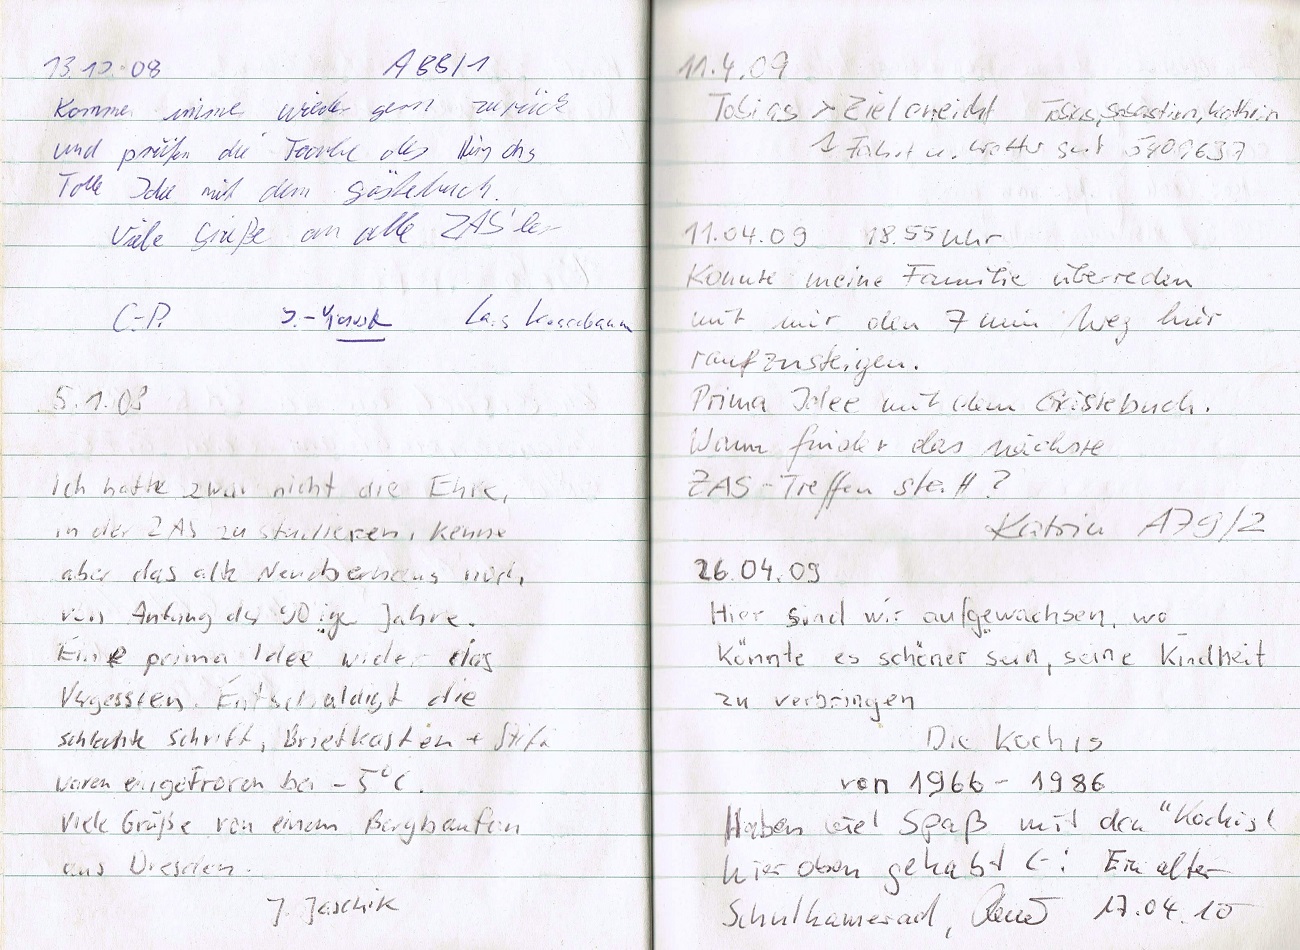 13.12.08 ABB/1
Kommen immer wieder gern zurück
und prüfen die Farbe des
Tolle Idee mit dem Gästebuch.
Viele Grüße an alle ZAS'ler
C-P.
5.1.09
Ich hatte zwar nicht die Ehre,
in der ZAS zu studieren, kenne
aber das alte noch,
von Anfang der 90iger Jahre.
Eine prima Idee wider das
Vergessen. Entschuldigt die
schlechte Schrift, Briefkasten + Stift
waren eingefroren bei -5°C.
Viele Grüße von einem Bergbaufan
aus Dresden.
J. Jaschik
11.4.09
Tobias > Ziel erreicht Tobias, Sebastian, Kathrin
1 Fahrt u.
11.04.09 18.55 Uhr
Konnte meine Familie überreden
mit mir den 7 min Weg hier
raufzusteigen.
Prima Idee mit dem Gästebuch.
Wann findet das nächste
ZAS-Treffen statt?
Katrin A79/2
26.04.09
Hier sind wir aufgewachsen, wo
könnte es schöner sein, seine Kindheit
zu verbringen
Die Kochis
von 1966 - 1986
Haben viel Spaß mit den "Kochis"
hier oben gehabt (-: Ein alter
Schulkamerad, 17.04.10